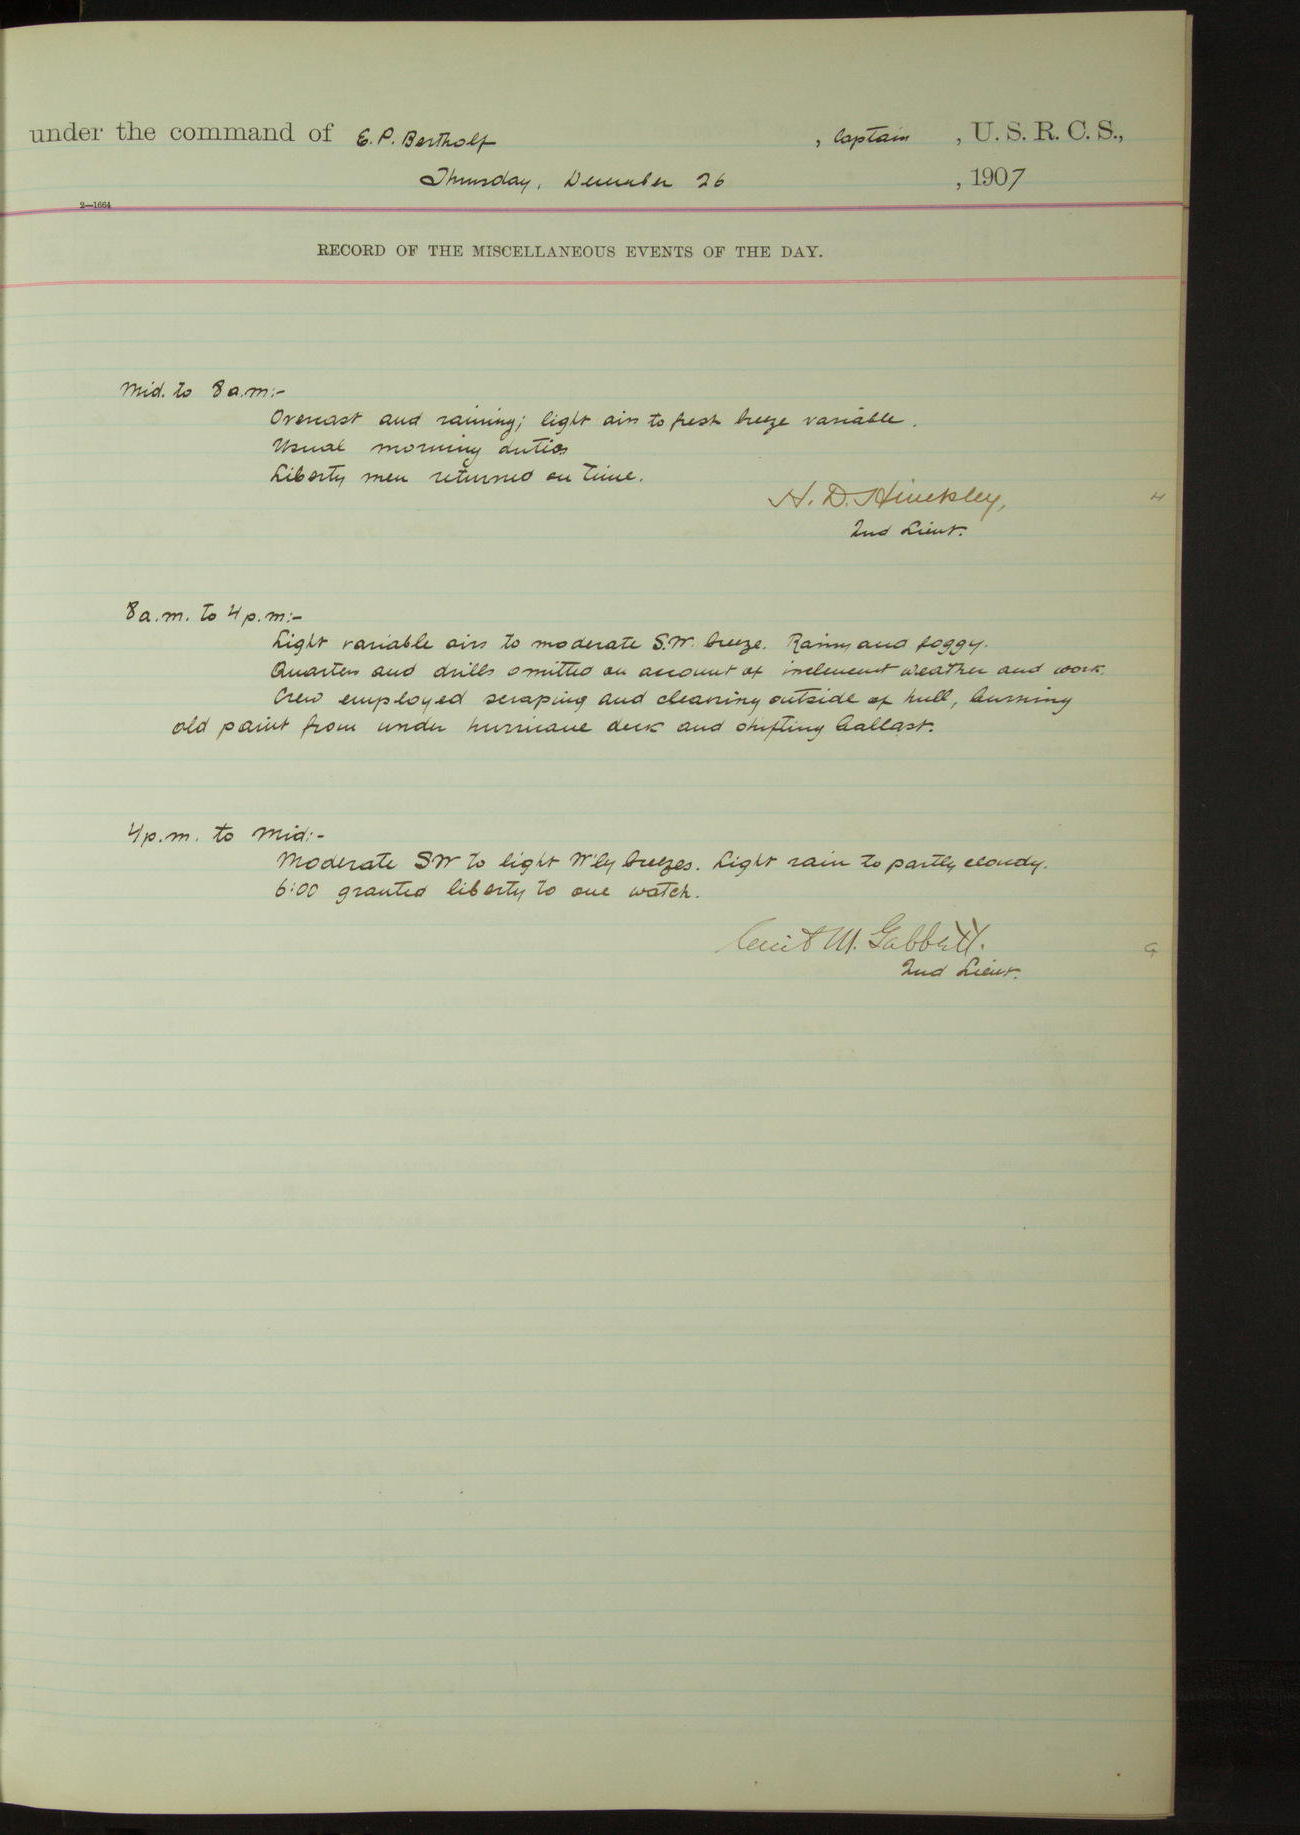 under the command of E. P. Bertholf, Captain, U. S. R. C. S.,
Thursday, December 26, 1907
2—1664
RECORD OF THE MISCELLANEOUS EVENTS OF THE DAY.
Mid. to 8 a.m:-
Overcast and raining; light airs to fresh breeze variable.
Usual morning duties
Liberty men returned on time.
H. D. Hinckley,
2nd Lieut.
H
8 a.m. to 4 p.m:-
Light variable airs to moderate S.W. breeze. Rainy and foggy.
Quarters and drills omitted on account of inclement weather and work.
Crew employed scraping and cleaning outside of hull, burning
old paint from under hurricane deck and shifting ballast.
4 p.m. to Mid:-
Moderate SW to light W'ly breezes. Light rain to partly cloudy.
6:00 granted liberty to one watch.
M. Gabbett.
2nd Lieut.
G